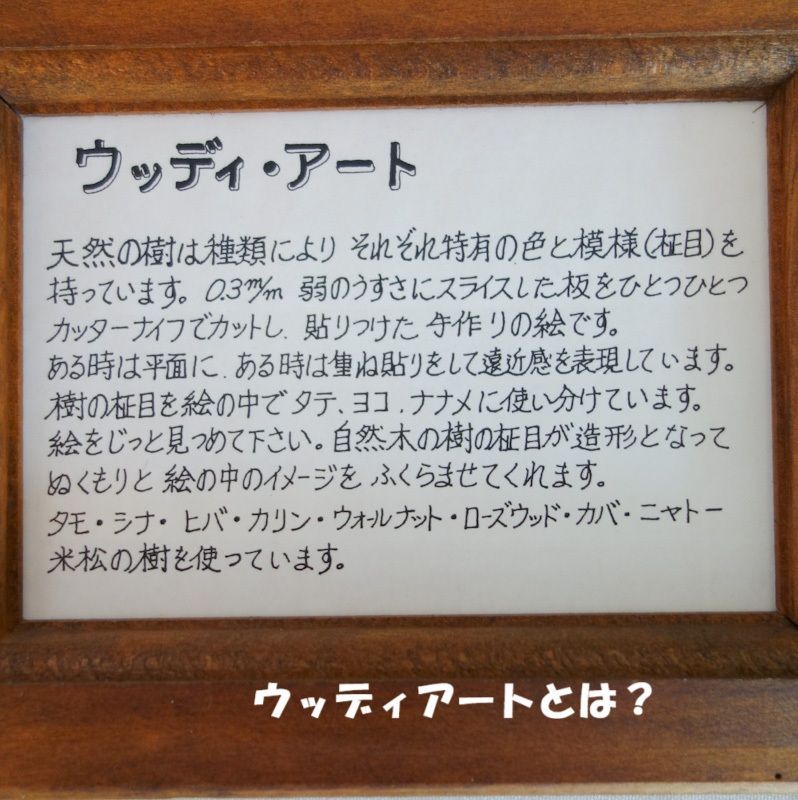 ウッディ・アート
天然の樹は種類により それぞれ特有の色と模様(柾目)を
持っています。0.3m/m 弱のうすさにスライスした板をひとつひとつ
カッターナイフでカットし、貼りつけた 手作りの絵です。
ある時は平面に、ある時は重ね貼りをして遠近感を表現しています。
樹の柾目を絵の中でタテ、ヨコ、ナナメに使い分けています。
絵をじっと見つめて下さい。自然木の樹の柾目が造形となって
ぬくもりと 絵の中のイメージを ふくらませてくれます。
タモ・シナ・ヒバ・カリン・ウォールナット・ローズウッド・カバ・ニャトー
米松の樹を使っています。
ウッディアートとは？